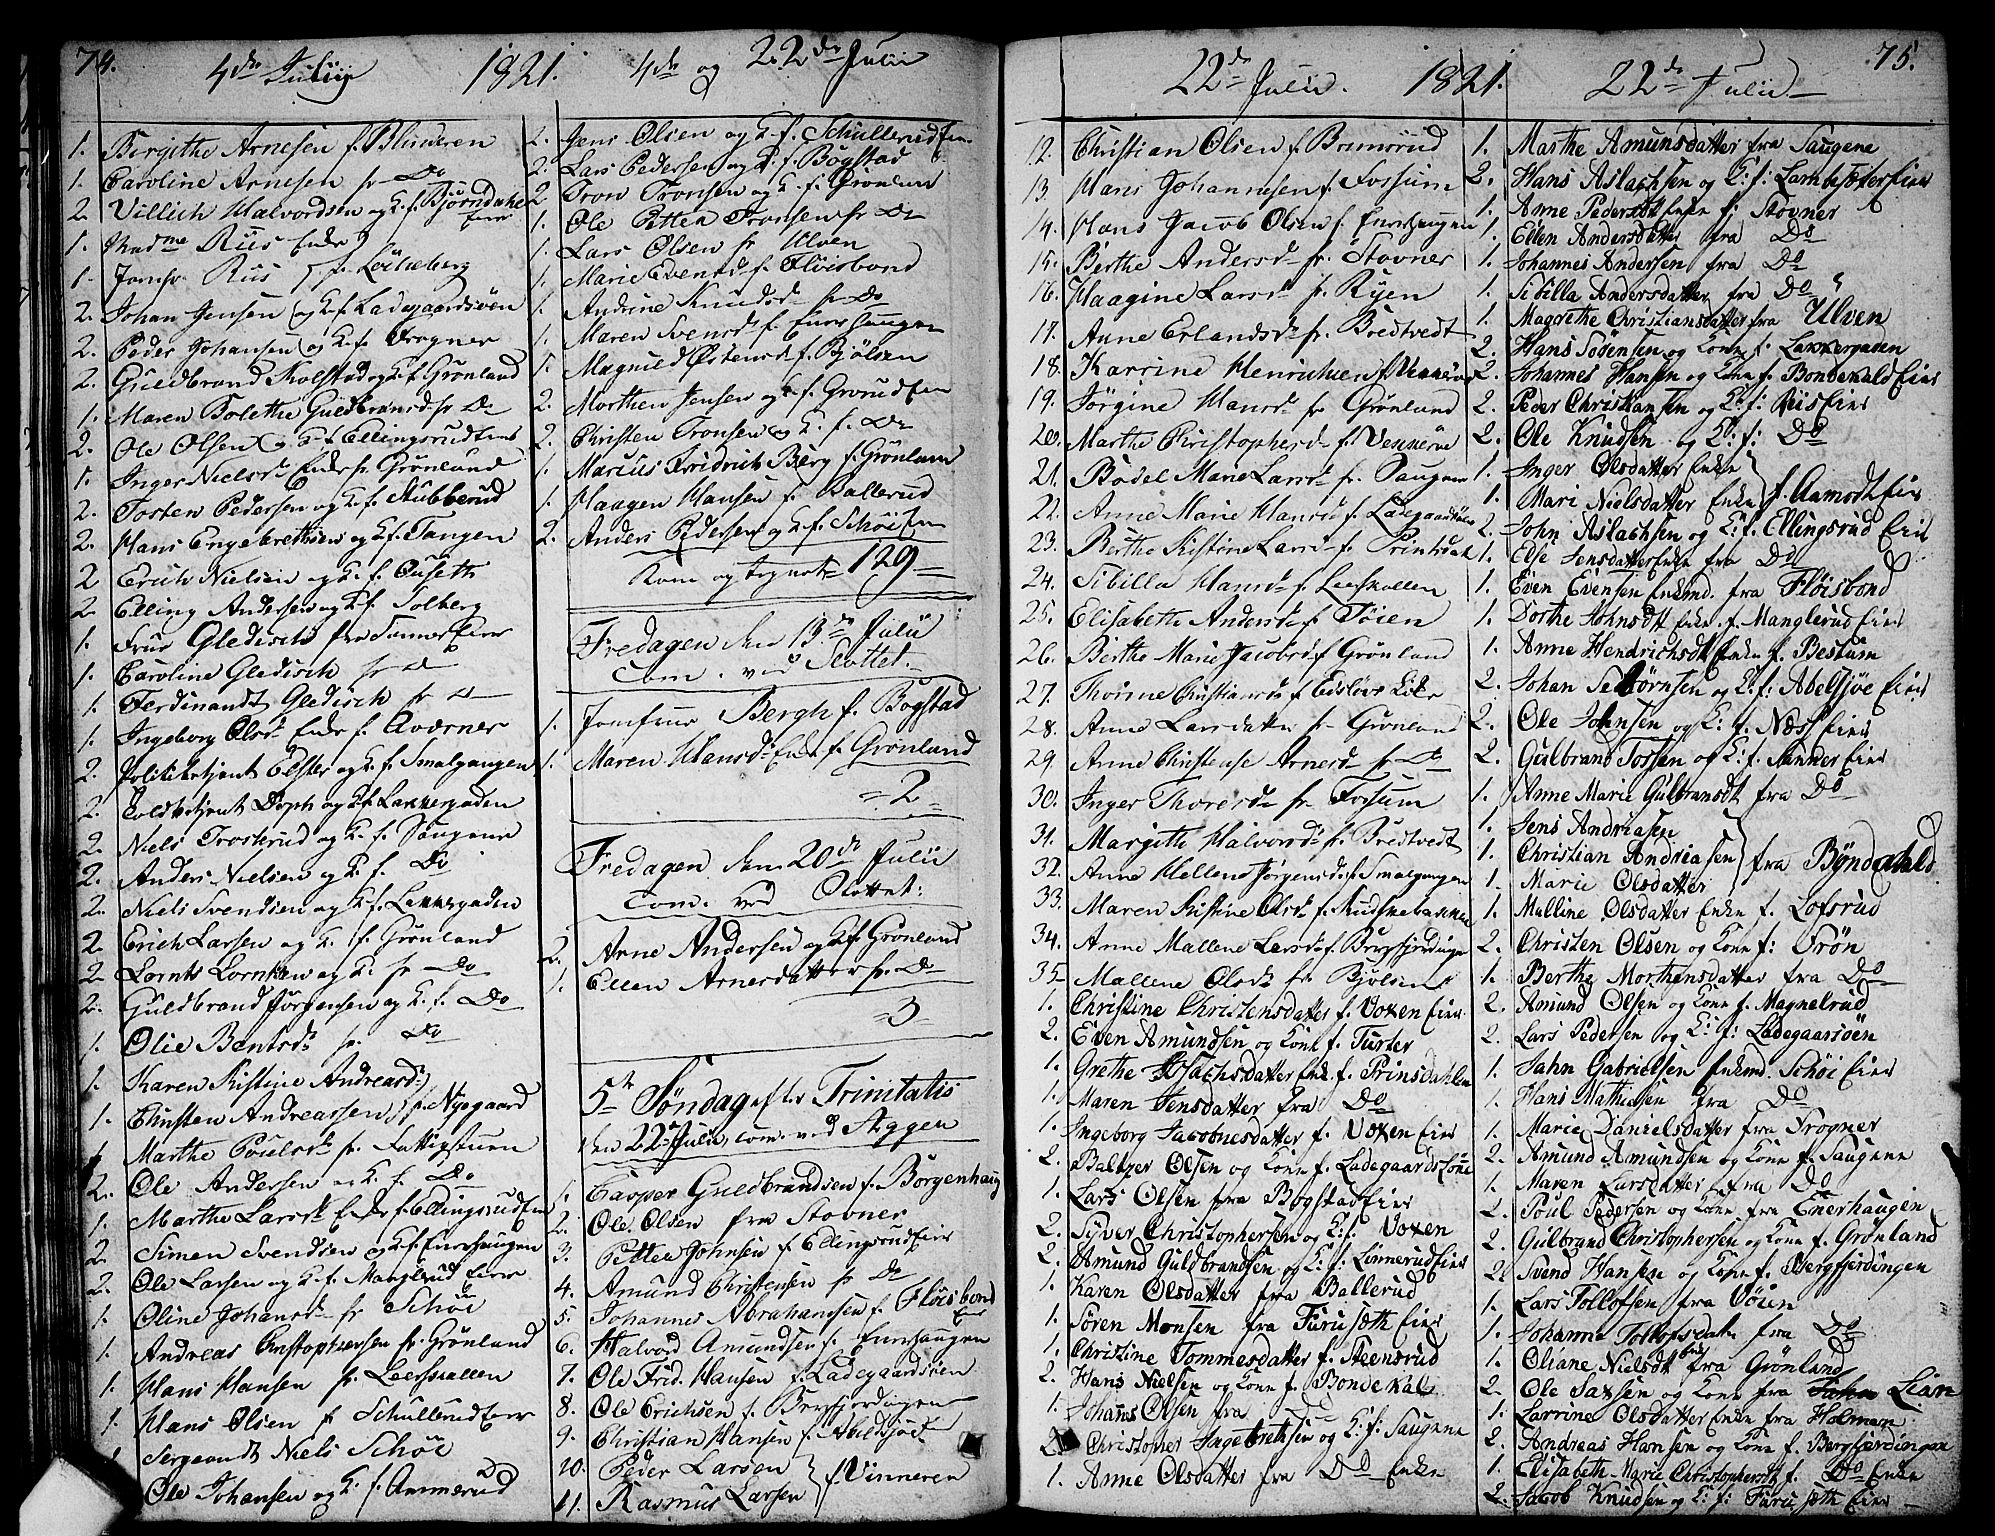 74.
4de Julii 1821. 4de og 22de Julii
1. Birgithe Arnesen f. Blinderen
1. Caroline Arnesen fr Do
2. Villich Halvordsen og K. f. Bjørndahls Eier
1. Madme Ruus Enke
1. Jomfr Ruus f. Løitseberg
2. Johan Jensen og K. f. Ladegaardsøen
2. Peder Johansen og K. f. Frogner
2. Guldbrand Kolstad og K. f. Grønland
1. Maren Bolethe Guldbransd. fr Do
2. Ole Olsen og K. f. Ellingsrud Eier
1. Inger Nielsd. Enke fr. Grønland
2. Torsten Pedersen og K. f. Stubberud
2. Hans Engebrethsen og K. f. Tangen
2 Erich Nielsen og K. f. Ouseth
2. Elling Andersen og K. f. Tolberg
1. Frue Gledisch fra Sannereier
1. Caroline Gledisch fr do
1. Ferdinandt Gledisch fr do
1. Ingeborg Olsd. Enke f. Qværner
2. Politibetjent Elster og K. f. Smalgangen
2. Toldbetjent Doph og K. f. Lakkergaden
2. Niels Trosterud og K. f. Saugene
2. Anders Nielsen og K. f. Do
2. Niels Svendsen og K. f. Lakkergaden
2. Erich Larsen og K. f. Grønland
2. Lornts Lorntsen og K. fr Do
2. Guldbrand Jørgensen og K. f. Do
1. Olie Bentsd. fr. Do
1. Karen Kistine Andreasd.
1. Christen Andreassen f. Nyegaard
1. Marthe Poulsd. fr. Fattigstuen
2. Ole Andersen og K. f. Do
1. Marthe Larsd. Enke f. Ellingsrud Eier
2. Simen Svendsen og K. f. Enerhaugen
2. Ole Larsen og K. f. Manglerud Eier
1. Oline Johansd. fr Schøie
1. Andreas Christophersen fr. Grønland
1. Hans Hansen fr. Leerskallen
1. Hans Olsen f. Schullerud Eier
1. Sergeandt Niels Schøie
Ole Johansen og K. f. Ammerud
2. Jens Olsen og K. f. Schullerud Eier
2. Lars Pedersen og K. f. Bogstad
2 Tron Tronsen og K. f. Grønland
1. Ole Petter Tronsen fr Do
1. Lars Olsen fr Ulven
1. Marie Evensd. f. Fløisbond
1. Andrine Knudsd. fr Do
1. Maren Svensd. f. Enerhaugen
1. Magnild Østensd. f. Bjølsen
2. Morthen Jensen og K. f. Grorud Eier
2. Christen Tronsen og K. f. Do
1. Marius Fridrich Berg f. Grønland
1. Haagen Hansen f. Ballerud
2. Anders Pedersen og K. f. Schøi Eier
Kom og tegnet 129
Fredagen den 13de Julii
Com. ved Slottet.
1. Jomfrue Bergh f. Bogstad
1. Maren Hansd. Enke f. Grønland
=2=
Fredagen den 20de Julii
Com. ved Slottet:
2. Arne Andersen og K. f. Grønland
1. Ellen Arnesdatter fr. Do
=3=
5te Søndag efter Trinitatis
den 22de Julii, com. ved Aggen
1. Casper Guldbrandsen f. Borgenhaug
2. Ole Olsen fra Stovner
3. Petter Johnsen f. Ellingsrud Eier
4. Amund Christensen fr Do
5. Johannes Abrahamsen f. Fløisbond Eier
6. Halvord Amundsen f. Enerhaugen
7. Ole Frid. Hansen f. Ladegaardsøen
8. Ole Erichsen f. Bergfjerdingen
9. Christian Hansen f. Abildsjøe
10. Peder Larsen
11. Rasmus Larsen f. Vinneren
75.
22de Julii. 1821. 22de Julii
12. Christian Olsen f. Bamsrud
13. Hans Johannesen f. Fossum
14. Hans Jacob Olsen f. Enerhaugen
15. Berthe Andersd. fr. Stovner
16. Haagine Larsd. fr. Ryen
17. Anne Erlandsd. fr. Bredtvedt
18. Karrine Henrichsen f. Vennerøe
19. Jørgine Hansd. fr Grønland
20. Marthe Christophersd. f. Vennerøe
21. Bodel Marie Larsd. fr. Saugene
22. Anne Marie Hansd. f. Ladegaardsøen
23. Berthe Kistine Larsd. f. Printsdal
24. Sibilla Hansd. f. Leerskallen
25. Elisabeth Andersd. f. Tøien
26. Berthe Marie Jacobsd. f. Grønland
27. Thorine Christiansd. f. Eidsløes Eier
28. Anne Larsdatter fr. Grønland
29. Anne Christense Arnesd. fr Do
30. Inger Thoresd. fr. Fossum
31. Margith Halvorsd. fr. Bredtvedt
32. Anne Hellene Jørgensd. f. Smalgangen
33. Maren Kistine Olsd. f. Rudsnebakken
34. Anne Mallene Larsd. f. Bergfjerdingen
35 Mallene Olsd. fr Bjølsen
1. Christine Christensdatter f. Voxen Eier
2. Even Amundsen og Kone f. Furter
1. Grethe Aslachsdatter Enk. f. Prinsdahlen
1. Maren Jensdatter fra Do
1. Ingeborg Jacobnesdatter f. Voxen Eier
2. Baltzer Olsen og Kone f. Ladegaardsøene
1. Lars Olsen fra Bogstad Eier
2. Syver Christophersen og K: f. Voxen
2. Amund Guldbrandsen og K: f. Linnerud Eier
1. Karen Olsdatter fra Ballerud
1. Søren Monsen fra Furusæth Eier
1. Christine Tommesdatter f. Steensrud
2. Hans Nielsen og Kone f. Bondekal
1. Johans Olsen fra Do
2. Christopher Ingebrethsen og K: f: Saugene
1. Anne Olsdatter fra Do Enke
1. Marthe Amunsdatter fra Saugene
2. Hans Aslachsen og K: f: Lambertseter Eier
1. Anne Pedersdt Enke f: Stovner
1. Ellen Andersdatter fra Do
1. Johannes Andersen fra Do
1. Sibilla Andersdatter fra Do
1. Magrethe Christiansdatter fra Ulven
2. Hans Sørensen og Kone f. Lakkergaden
2. Johannes Hansen og Kone f. Bondekald Eier
2. Peder Christiansen og K: f: Riis Eier
2. Ole Knudsen og K: f: Do
1. Inger Olsdatter Enke
1. Mari Nielsdatter Enke f. Aamodt Eier
2. John Aslachsen og K: f. Ellingsrud Eier
1. Else Jensdatter Enke fra Do
1. Even Evensen Enkmd. fra Fløisbond
1. Dorthe Johnsdt Enke f. Manglerud Eier
1. Anne Hendrichsdt Enke f. Bestum
2. Johan Sebjørnsen og K: f: Abelsjøe Eier
2. Ole Johnsen og K: f. Næss Eier
2. Gulbrand Tossen og K: f. Sanner Eier
1. Anne Marie Gulbransdt fra Do
1. Jens Andriasen
1. Christian Andreasen fra Byndahls
1. Marie Olsdatter
1. Malline Olsdatter Enke f. Lofsrud
2. Christen Olsen og Kone f: Frøn
1. Berthe Morthensdatter fra Do
2. Amund Olsen og Kone f. Magnelrud
2. Lars Pedersen og K: f: Ladegaarsøen
1. Jahn Gabrielsen Enkmd. Schøi Eier
1. Hans Mathiesen fra Do
1. Marie Danielsdatter fra Frogner
2. Amund Amundsen og Kone f. Saugene
1. Maren Larsdatter fra Do
2. Poul Pedersen og Kone fra Enerhaugen
2. Gulbrand Christophersen og Kone f. Grønland
2. Svend Hansen og Kone f. Bergfjerdingen
1. Lars Tollofsen fra Vøien
1. Johanne Tollofsdatr fra Do
1. Oliane Nielsdt Enk fra Grønland
2. Ole Saxsen og Kone fra Lian
1. Larrine Olsdatter Enke fra Holmen
2. Andreas Hansen og Kone f. Bergfjerdingen
1. Elisabeth Marie Christophersdt f. Do Enke
2. Jacob Knudsen og K: f: Furusæth Eier